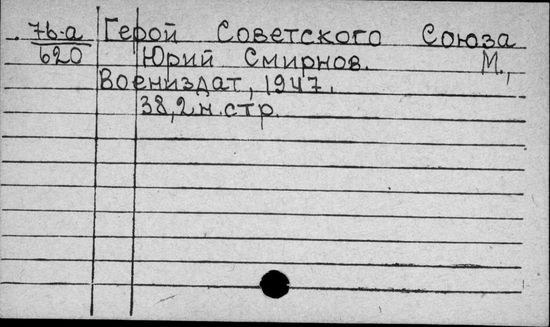 76-а Герой Советского Союза
620 Юрий Смирнов. М.,
Воениздат, 1947.
38,2 н. стр.